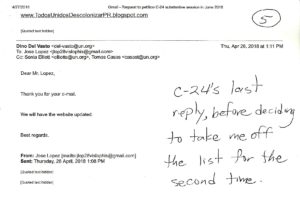 4/27/2018
Gmail - Request to petition C-24 substantive session in June 2018
www.TodosUnidosDescolonizarPR.blogspot.com
5
[Quoted text hidden]
Dino Del Vasto <del-vasto@un.org>
Thu, Apr 26, 2018 at 1:11 PM
To: Jose Lopez <jlop28vislophis@gmail.com>
Cc: Sonia Elliott <elliotts@un.org>, Tomas Casas <casast@un.org>
Dear Mr. Lopez,
Thank you for your e-mail.
We will have the website updated.
Best regards.
From: Jose Lopez [mailto:jlop28vislophis@gmail.com]
Sent: Thursday, 26 April, 2018 1:08 PM
[Quoted text hidden]
[Quoted text hidden]
C-24's last
reply, before deciding
to take me off
the list for the
second time.